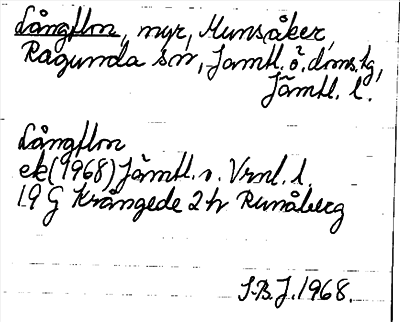 Långflon, myr, Munsåker,
Ragunda sn, Jämtl. ö. doms.tg,
Jämtl. l.
Långflon
ek (1968) Jämtl. o. Vrnl. l.
19 G Krångede 2 h Runåberg
S.B.J. 1968.